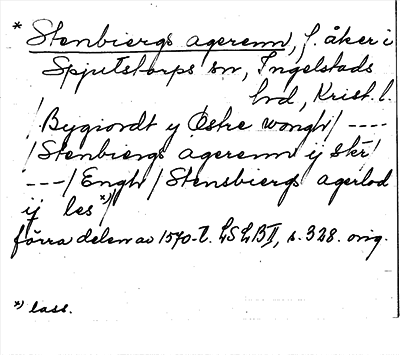 * Stenbiergs agerenn, f. åker i
Spjutstorps sn, Ingelstads
hrd, Krist. l.
/Bygiordt y Östre wongh/ ----
/Stenbiergs agerenn ij skr/
---/Engh/Stensbiergs agerlod
ij les *)/
förra delen av 1570-t. LSLBII, s. 328. orig.
*) lass.